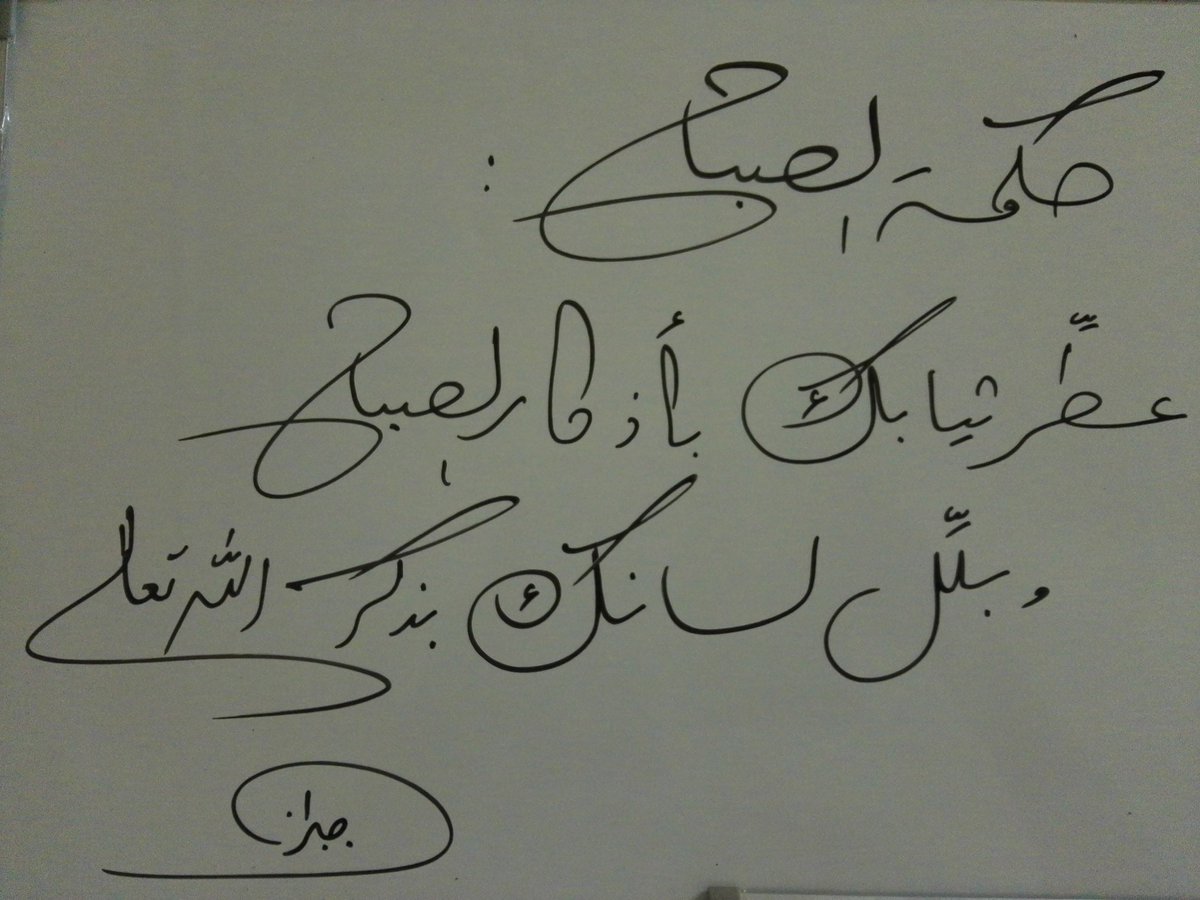 حكمة الصباح :
عطِّر ثيابك بأذكار الصباح
وبلِّل لسانك بذكر الله تعالى
جبران